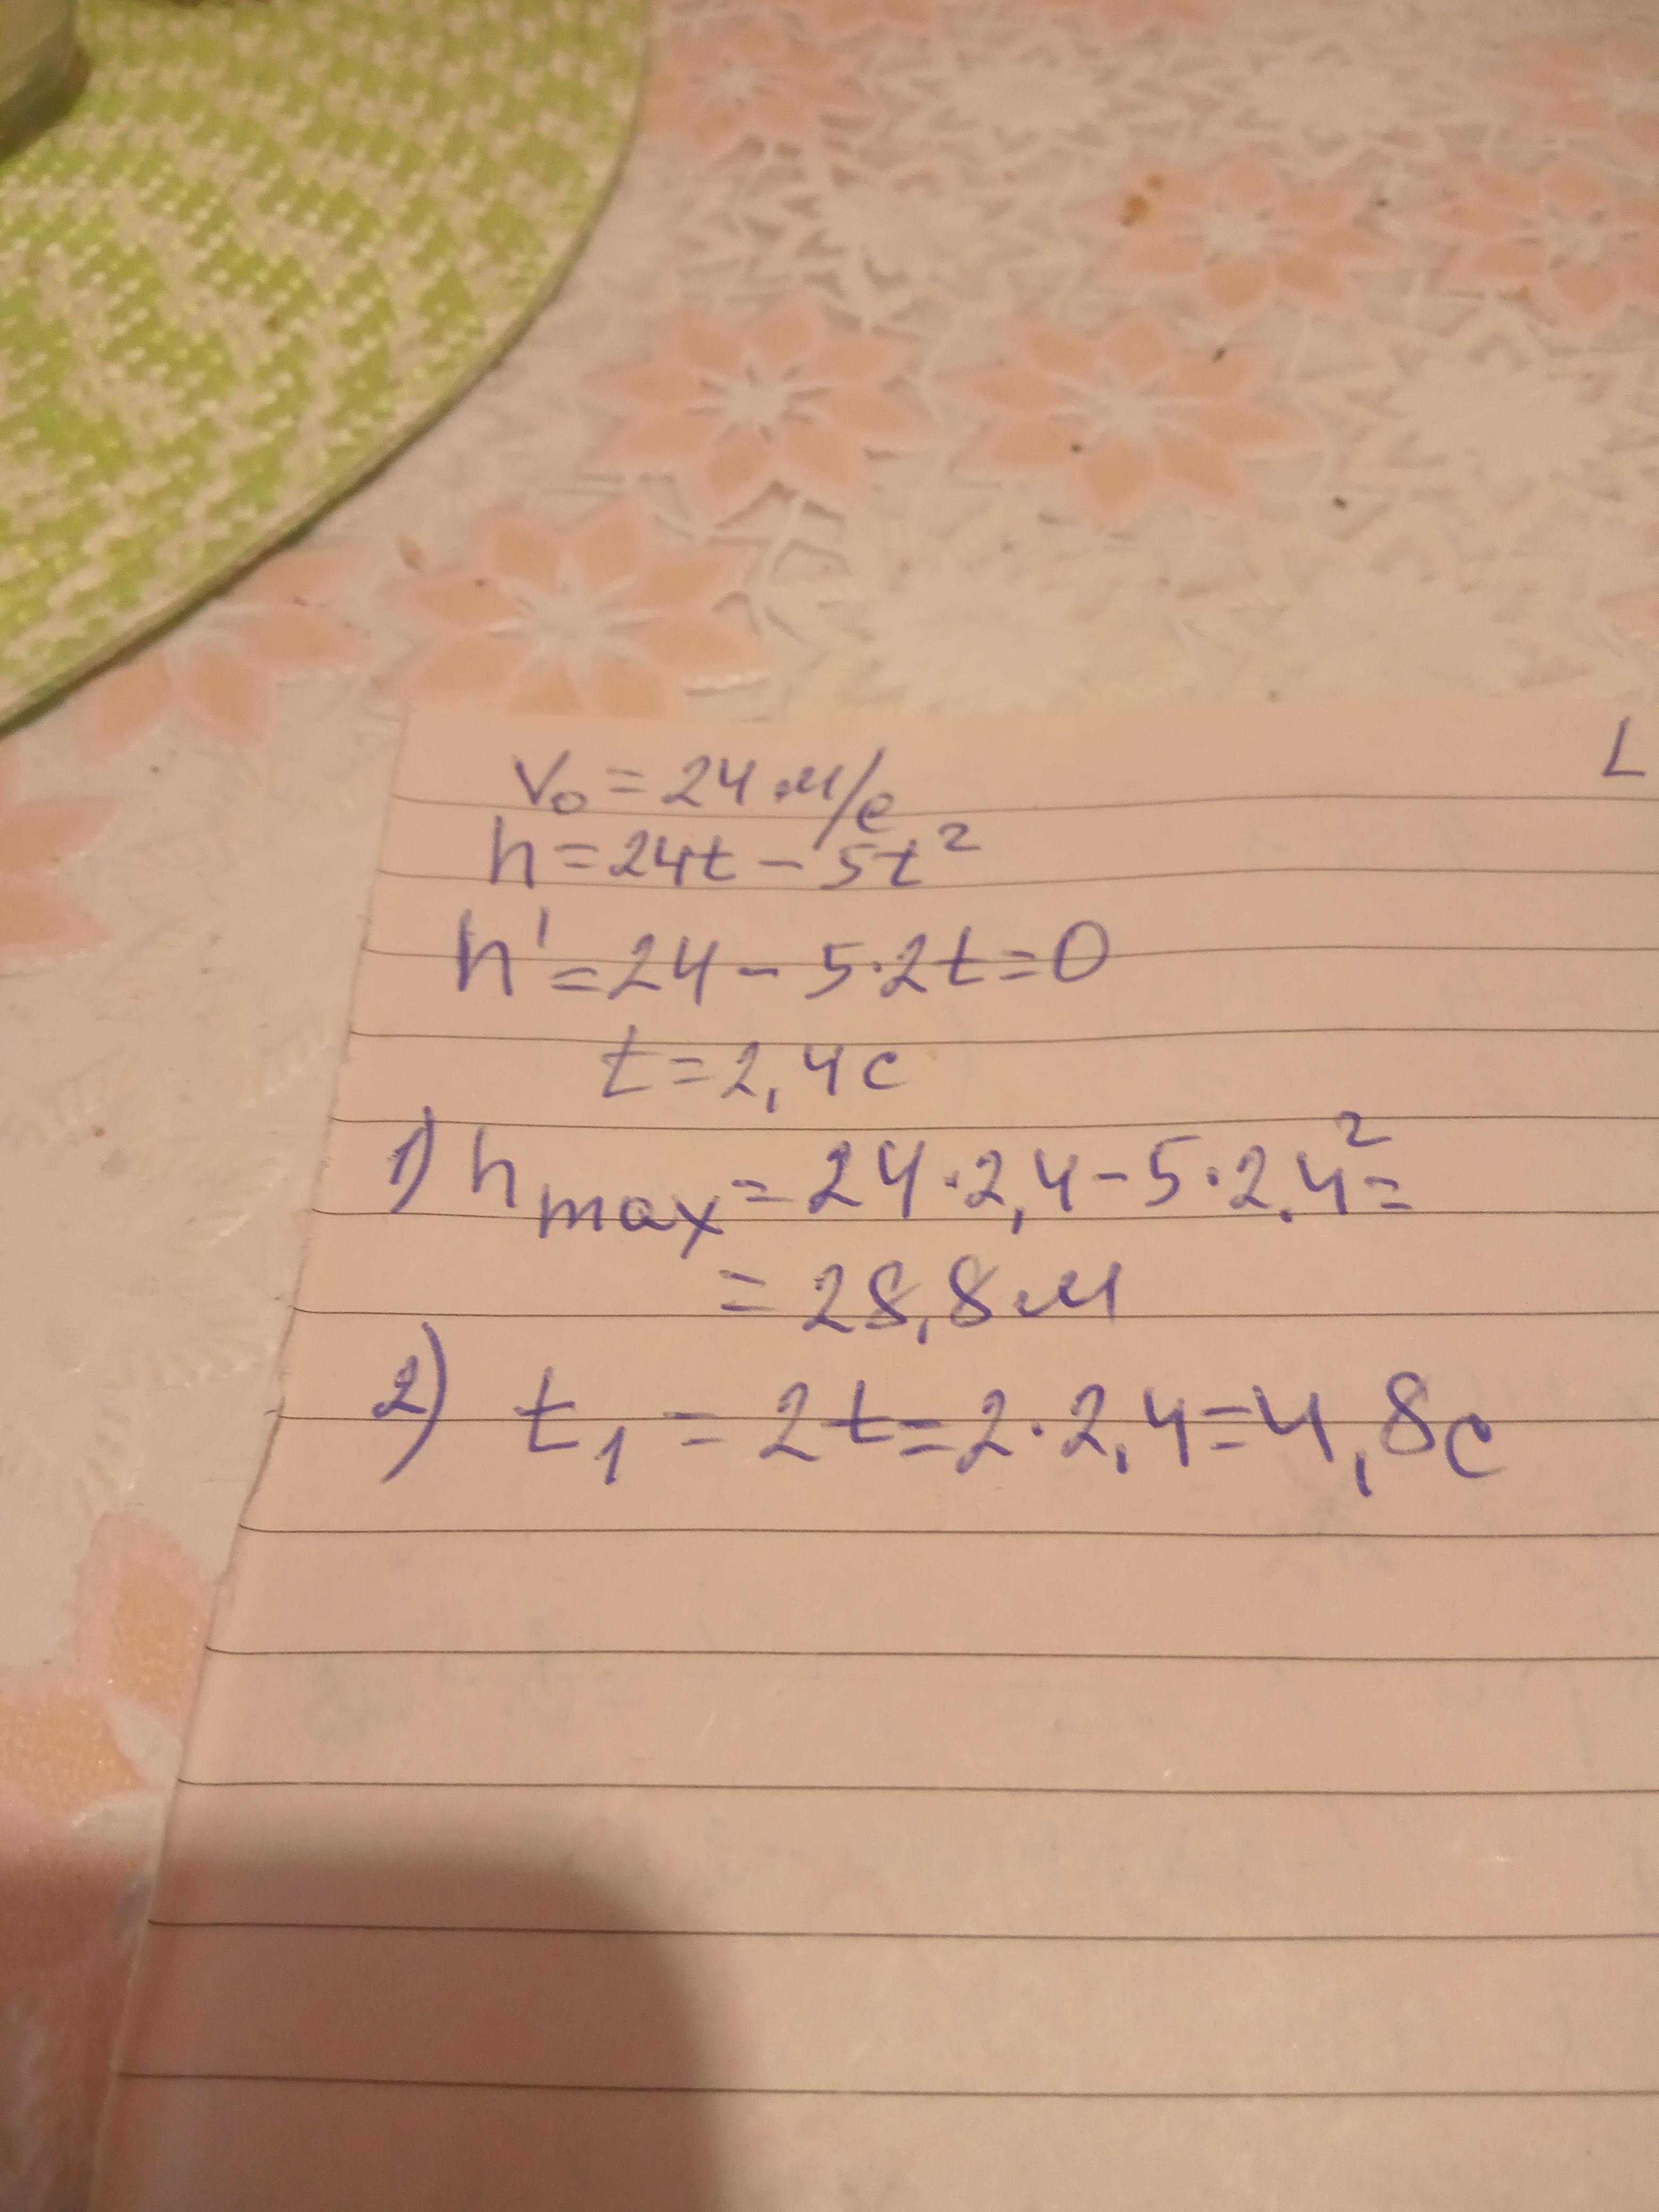 V₀ = 24 м/с
h = 24t - 5t²
h' = 24 - 5·2t = 0
t = 2,4 с
1) h max = 24·2,4 - 5·2,4² =
= 28,8 м
2) t₁ = 2t = 2·2,4 = 4,8 с
L